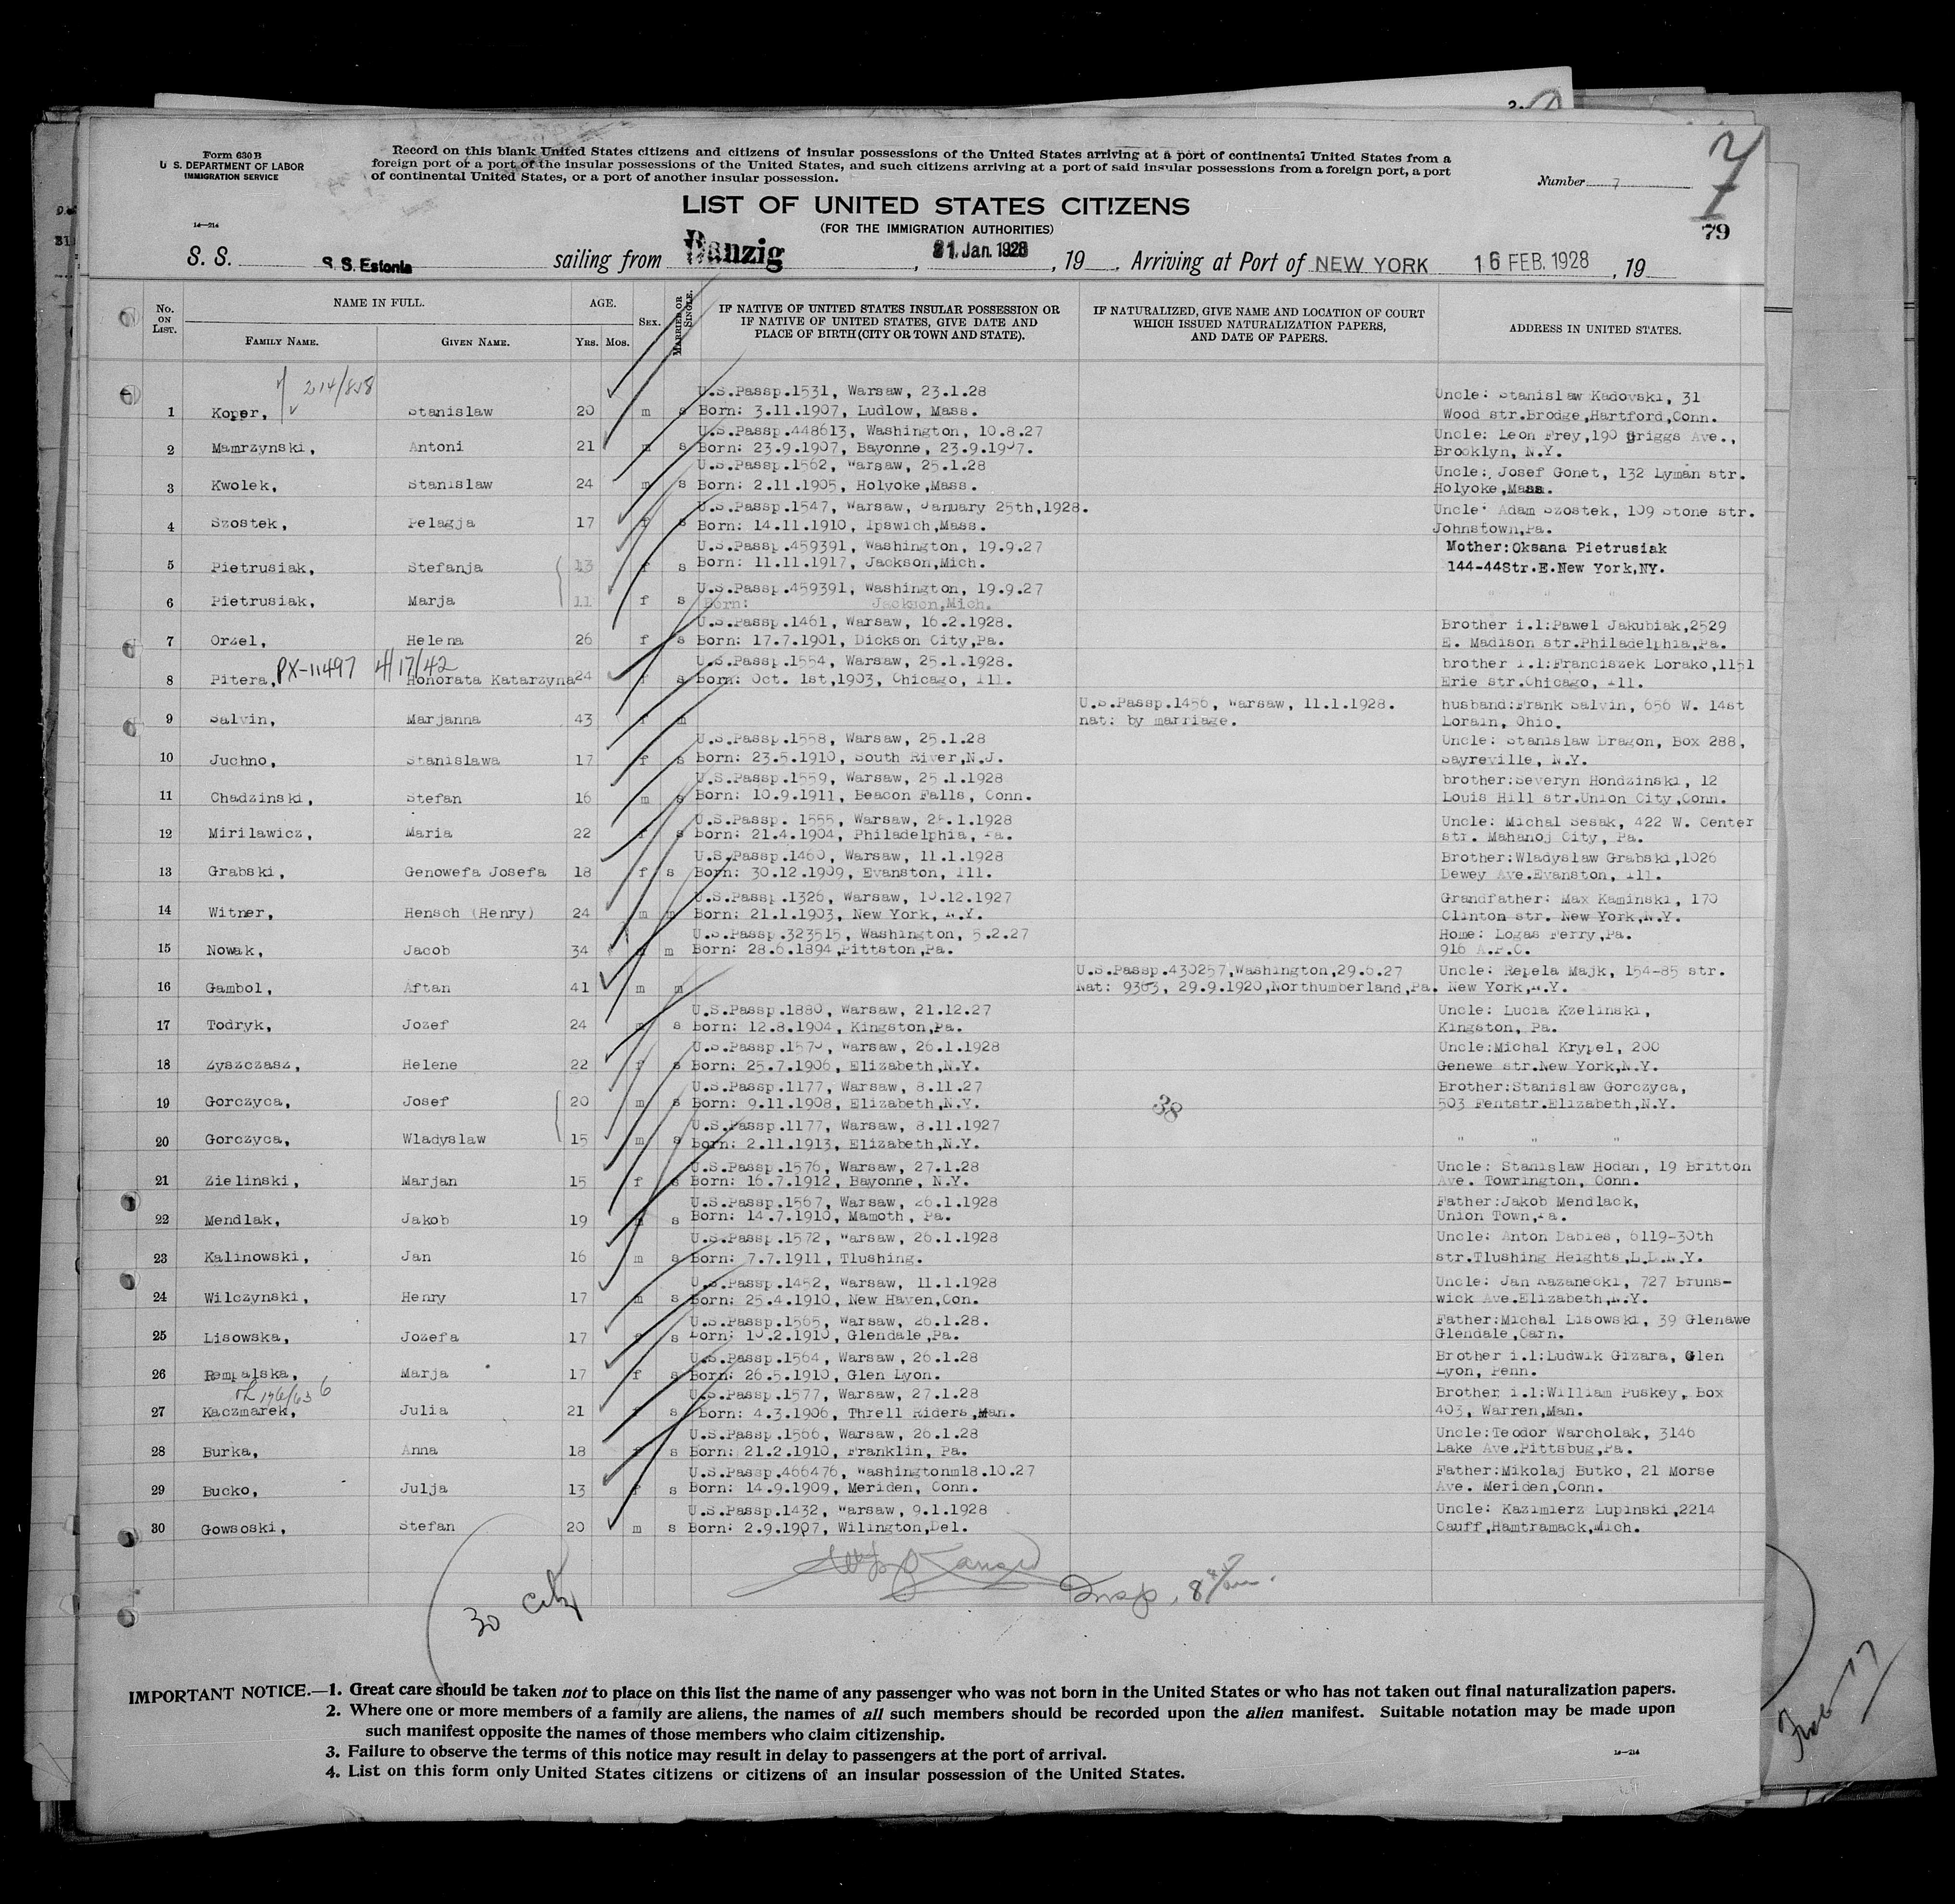 Form 630 B
U. S. DEPARTMENT OF LABOR
IMMIGRATION SERVICE
14—214
Record on this blank United States citizens and citizens of insular possessions of the United States arriving at a port of continental United States from a
foreign port or a port of the insular possessions of the United States, and such citizens arriving at a port of said insular possessions from a foreign port, a port
of continental United States, or a port of another insular possession.
Number 7
7
79
LIST OF UNITED STATES CITIZENS
(FOR THE IMMIGRATION AUTHORITIES)
S. S. S. S. Estonia sailing from Danzig, 31. Jan. 1928, 19 , Arriving at Port of NEW YORK 16 FEB. 1928, 19
No. ON LIST. NAME IN FULL. FAMILY NAME. GIVEN NAME. AGE. YRS. MOS. SEX. MARRIED OR SINGLE.
IF NATIVE OF UNITED STATES INSULAR POSSESSION OR
IF NATIVE OF UNITED STATES, GIVE DATE AND
PLACE OF BIRTH (CITY OR TOWN AND STATE).
IF NATURALIZED, GIVE NAME AND LOCATION OF COURT
WHICH ISSUED NATURALIZATION PAPERS,
AND DATE OF PAPERS.
ADDRESS IN UNITED STATES.
214/858
U.S.Passp.1531, Warsaw, 23.1.28 Uncle: Stanislaw Kadovski, 31
1 Koper, Stanislaw 20 m s Born: 3.11.1907, Ludlow, Mass. Wood str.Brodge,Hartford,Conn.
U.S.Passp.448613, Washington, 10.8.27 Uncle: Leon Frey,190 Griggs Ave.,
2 Mamrzynski, Antoni 21 m s Born: 23.9.1907, Bayonne, 23.9.1907. Brooklyn, N.Y.
U.S.Passp.1562, Warsaw, 25.1.28 Uncle: Josef Gonet, 132 Lyman str.
3 Kwolek, Stanislaw 24 m s Born: 2.11.1905, Holyoke,Mass. Holyoke,Mass.
U.S.Passp.1547, Warsaw, January 25th,1928. Uncle: Adam Szostek, 109 Stone str.
4 Szostek, Pelagja 17 f s Born: 14.11.1910, Ipswich,Mass. Johnstown,Pa.
U.S.Passp.459391, Washington, 19.9.27 Mother:Oksana Pietrusiak
5 Pietrusiak, Stefanja 13 f s Born: 11.11.1917, Jackson,Mich. 144-44Str.E.New York,NY.
U.S.Passp.459391, Washington, 19.9.27
6 Pietrusiak, Marja 11 f s Born: Jackson,Mich. " " "
U.S.Passp.1461, Warsaw, 16.2.1928. Brother i.l:Pawel Jakubiak,2529
7 Orzel, Helena 26 f s Born: 17.7.1901, Dickson City,Pa. E. Madison str.Philadelphia,Pa.
PX-11497 4/17/42 U.S.Passp.1554, Warsaw, 25.1.1928. brother i.l:Franciszek Lorako,1151
8 Pitera, Honorata Katarzyna 24 f s Born: Oct. 1st,1903, Chicago, Ill. Erie str.Chicago, Ill.
U.S.Passp.1456, Warsaw, 11.1.1928. husband:Frank Salvin, 656 W. 14st
9 Salvin, Marjanna 43 f m nat: by marriage. Lorain, Ohio.
U.S.Passp.1558, Warsaw, 25.1.28 Uncle: Stanislaw Dragon, Box 288,
10 Juchno, Stanislawa 17 f s Born: 23.5.1910, South River,N.J. Sayreville, N.Y.
U.S.Passp.1559, Warsaw, 25.1.1928 brother:Severyn Hondzinski, 12
11 Chadzinski, Stefan 16 m s Born: 10.9.1911, Beacon Falls, Conn. Louis Hill str.Union City,Conn.
U.S.Passp. 1555, Warsaw, 1.1928 Uncle: Michal Sesak, 422 W. Center
12 Mirilawicz, Maria 22 f s Born: 21.4.1904, Philadelphia, Pa. str. Mahanoj City, Pa.
U.S.Passp.1460, Warsaw, 11.1.1928 Brother:Wladyslaw Grabski,1026
13 Grabski, Genowefa Josefa 18 f s Born: 30.12.1909, Evanston, Ill. Dewey Ave.Evanston, Ill.
U.S.Passp.1326, Warsaw, 10.12.1927 Grandfather: Max Kaminski, 170
14 Witner, Hensch (Henry) 24 m m Born: 21.1.1903, New York, N.Y. Clinton str. New York,N.Y.
U.S.Passp.323515, Washington, 5.2.27 Home: Logas Ferry,Pa.
15 Nowak, Jacob 34 m m Born: 28.6.1894,Pittston,Pa. 916 A.P.O.
U.S.Passp.430257,Washington,29.6.27 Uncle: Repela Majk, 154-85 str.
16 Gambol, Aftan 41 m m Nat: 9363, 29.9.1920,Northumberland,Pa. New York,N.Y.
U.S.Passp.1880, Warsaw, 21.12.27 Uncle: Lucia Kzelinski,
17 Todryk, Jozef 24 m s Born: 12.8.1904, Kingston,Pa. Kingston, Pa.
U.S.Passp.1570, Warsaw, 26.1.1928 Uncle:Michal Krypel, 200
18 Zyszczasz, Helene 22 f s Born: 25.7.1906, Elizabeth,N.Y. Genewe str.New York,N.Y.
U.S.Passp.1177, Warsaw, 8.11.27 Brother:Stanislaw Gorczyca,
19 Gorczyca, Josef 20 m s Born: 9.11.1908, Elizabeth,N.Y. 38 503 Fentstr.Elizabeth,N.Y.
U.S.Passp.1177, Warsaw, 8.11.1927
20 Gorczyca, Wladyslaw 15 m s Born: 2.11.1913, Elizabeth,N.Y. " " "
U.S.Passp.1576, Warsaw, 27.1.28 Uncle: Stanislaw Hodan, 19 Britton
21 Zielinski, Marjan 15 f s Born: 16.7.1912, Bayonne, N.Y. Ave. Towrington, Conn.
U.S.Passp.1567, Warsaw, 26.1.1928 Father:Jakob Mendlack,
22 Mendlak, Jakob 19 m s Born: 14.7.1910, Mamoth, Pa. Union Town,Pa.
U.S.Passp.1572, Warsaw, 26.1.1928 Uncle: Anton Dabies, 6119-30th
23 Kalinowski, Jan 16 m s Born: 7.7.1911, Tlushing. str.Tlushing Heights,L.I.N.Y.
U.S.Passp.1452, Warsaw, 11.1.1928 Uncle: Jan Kazanecki, 727 Bruns-
24 Wilczynski, Henry 17 m s Born: 25.4.1910, New Haven,Con. wick Ave.Elizabeth,N.Y.
U.S.Passp.1565, Warsaw, 26.1.28. Father:Michal Lisowski, 39 Glenawe
25 Lisowska, Jozefa 17 f s Born: 10.2.1910, Glendale,Pa. Glendale,Carn.
U.S.Passp.1564, Warsaw, 26.1.28 Brother i.l:Ludwik Gizara, Glen
26 Rempalska, Marja 17 f s Born: 26.5.1910, Glen Lyon. Lyon, Penn.
U.S.Passp.1577, Warsaw, 27.1.28 Brother i.l:William Puskey, Box
27 Kaczmarek, Julia 21 f s Born: 4.3.1906, Threll Riders,Man. 403, Warren,Man.
U.S.Passp.1566, Warsaw, 26.1.28 Uncle:Teodor Warcholak, 3146
28 Burka, Anna 18 f s Born: 21.2.1910, Franklin, Pa. Lake Ave.Pittsbug,Pa.
U.S.Passp.466476, Washingtonm18.10.27 Father:Mikolaj Butko, 21 Morse
29 Bucko, Julja 13 f s Born: 14.9.1909, Meriden, Conn. Ave. Meriden,Conn.
U.S.Passp.1432, Warsaw, 9.1.1928 Uncle: Kazimierz Lupinski,2214
30 Gowsoski, Stefan 20 m s Born: 2.9.1907, Wilington,Del. Cauff,Hamtramack,Mich.
30
Insp.
IMPORTANT NOTICE.—1. Great care should be taken not to place on this list the name of any passenger who was not born in the United States or who has not taken out final naturalization papers.
2. Where one or more members of a family are aliens, the names of all such members should be recorded upon the alien manifest. Suitable notation may be made upon
such manifest opposite the names of those members who claim citizenship.
3. Failure to observe the terms of this notice may result in delay to passengers at the port of arrival.
4. List on this form only United States citizens or citizens of an insular possession of the United States.
14—214